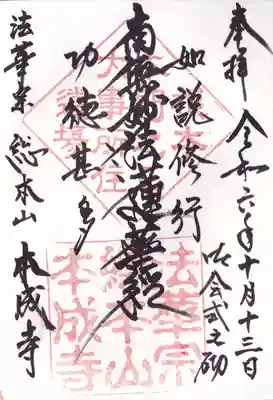 奉拝 令和六年十月十三日
お会式之砌
如説修行
南無妙法蓮華経
功徳甚多
法華宗 総本山 本成寺
法華宗
総本山
本成寺